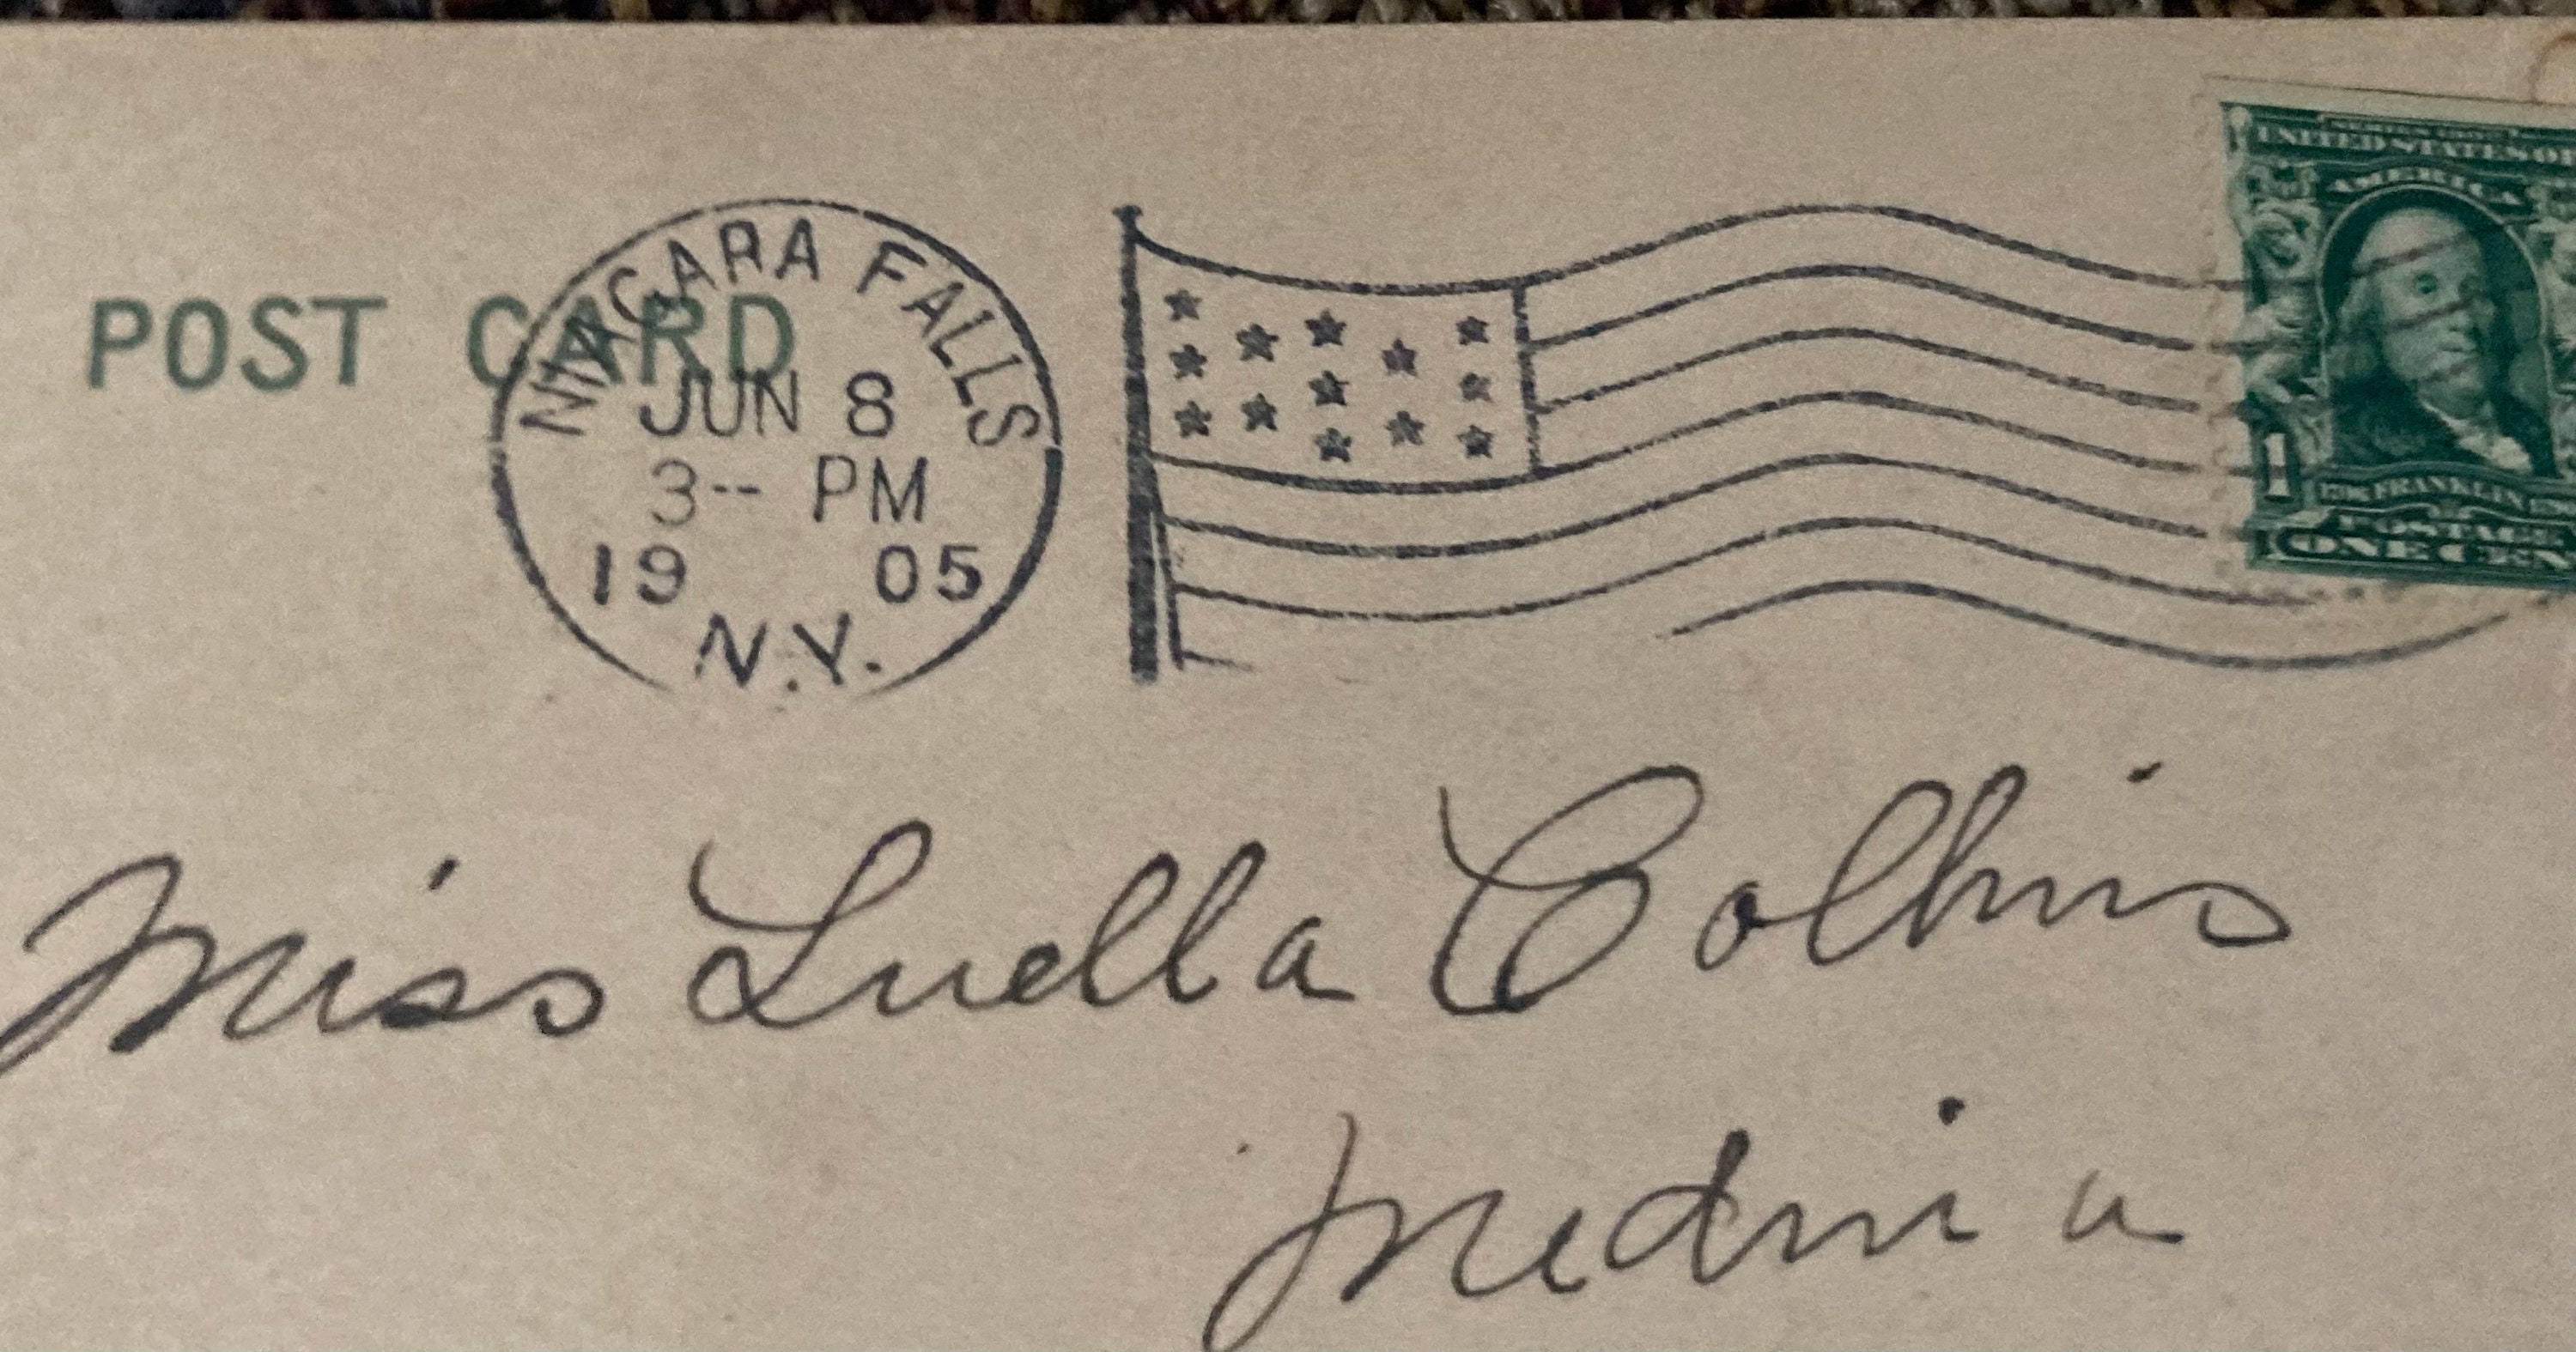 POST CARD
NIAGARA FALLS
JUN 8
3-- PM
19 05
N.Y.
UNITED STATES OF
AMERICA
1
FRANKLIN
POSTAGE
ONE CEN
Miss Luella Collins
Medina